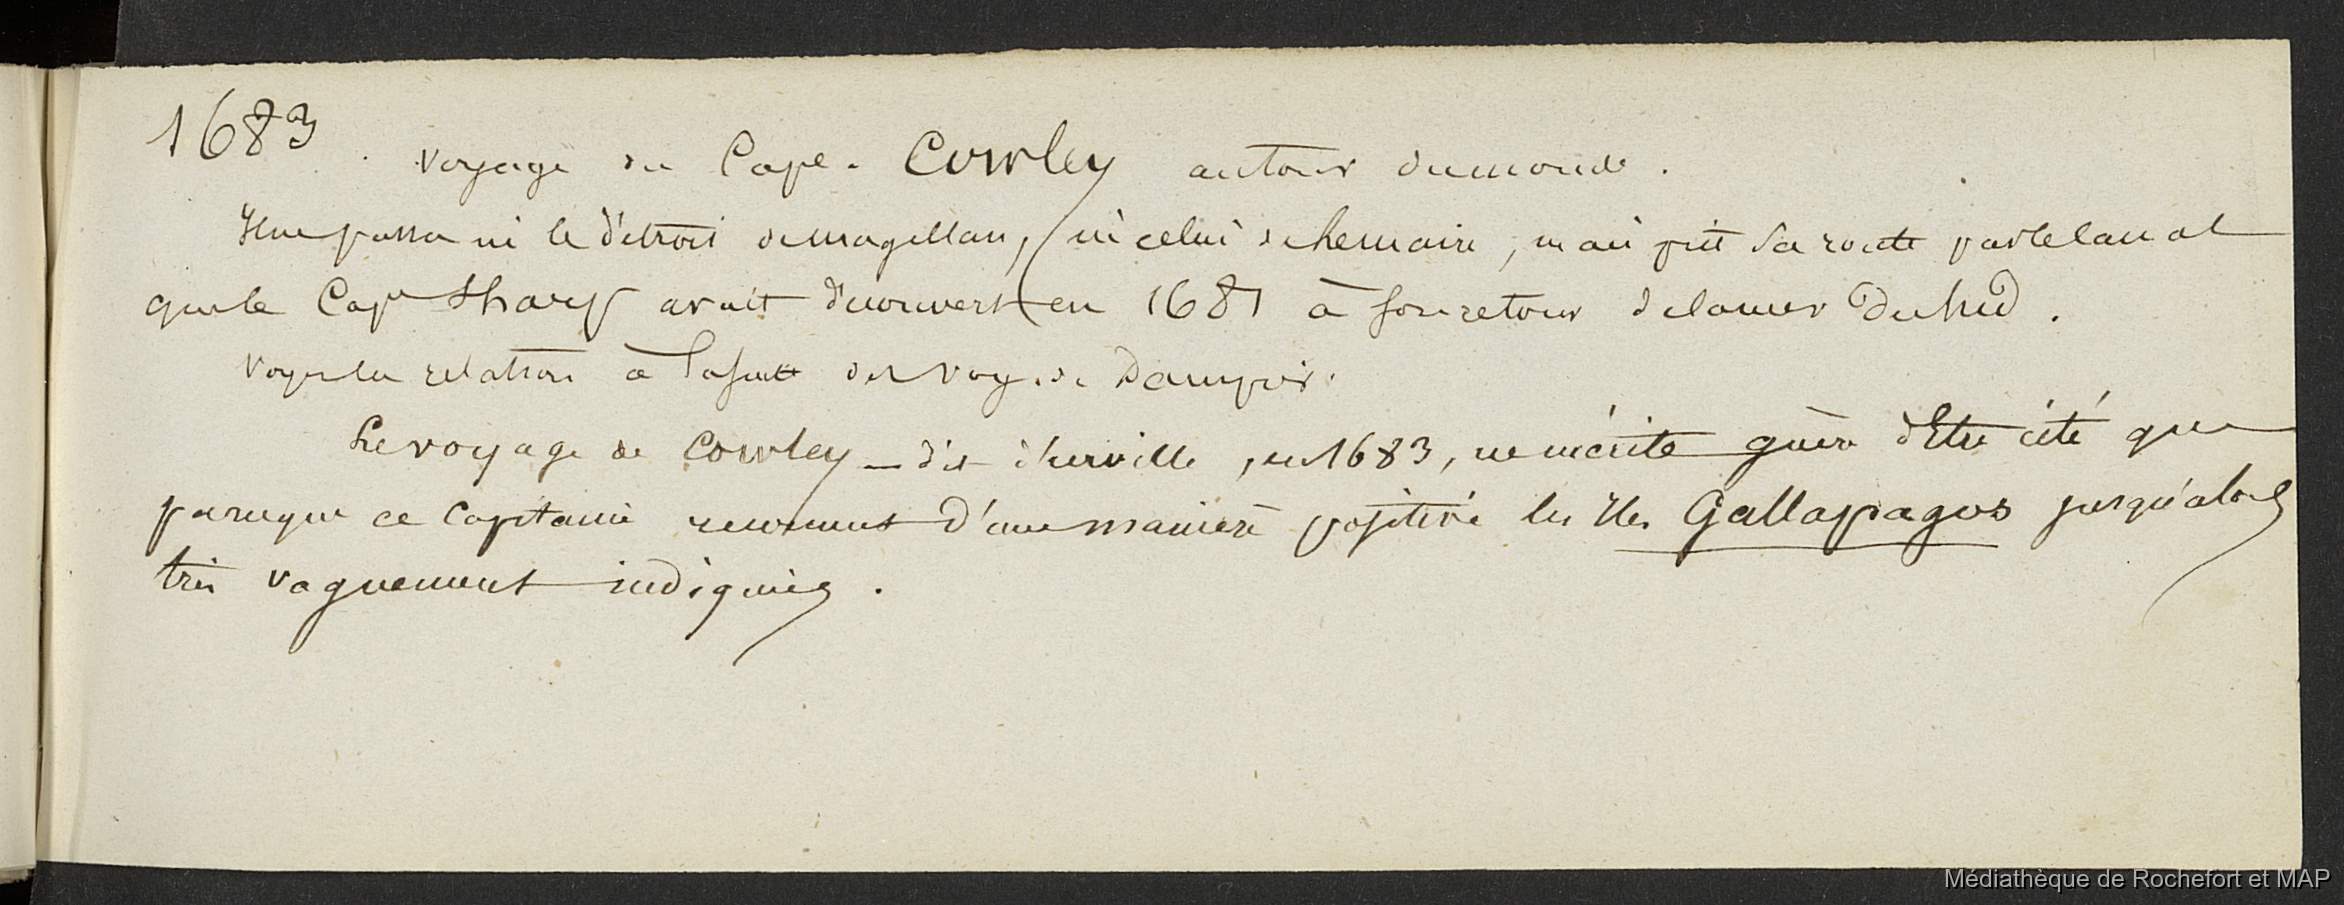 1683. Voyage du Cape. Cowley autour du monde.
Il ne passa ni le détroit de magellan, ni celui de Lemaire, mais prit sa route par le canal
que le Capne Sharp avait découvert en 1681 à son retour de la mer du Sud.
Voyez la relation à la suite des Voy. de Dampier.
Le voyage de Cowley – dit d'urville, en 1683, ne mérite guère d'Etre cité que
parceque ce Capitaine reconnut d'une manière positive les Iles Gallapagos jusqu'alors
très vaguement indiquées.
Médiathèque de Rochefort et MAP